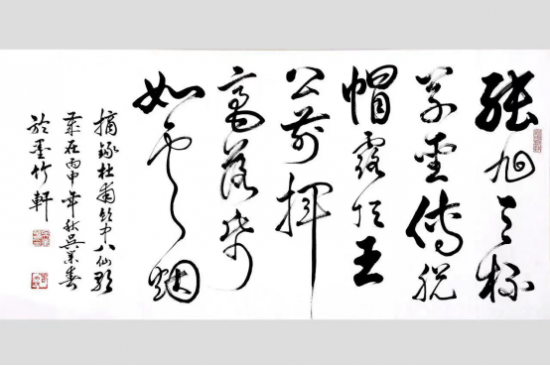 張旭三杯
草聖傳脫
帽露頂王
公前揮
毫落紙
如雲烟
摘錄杜甫飲中八仙歌
歲在丙申年秋吳
於墨竹軒